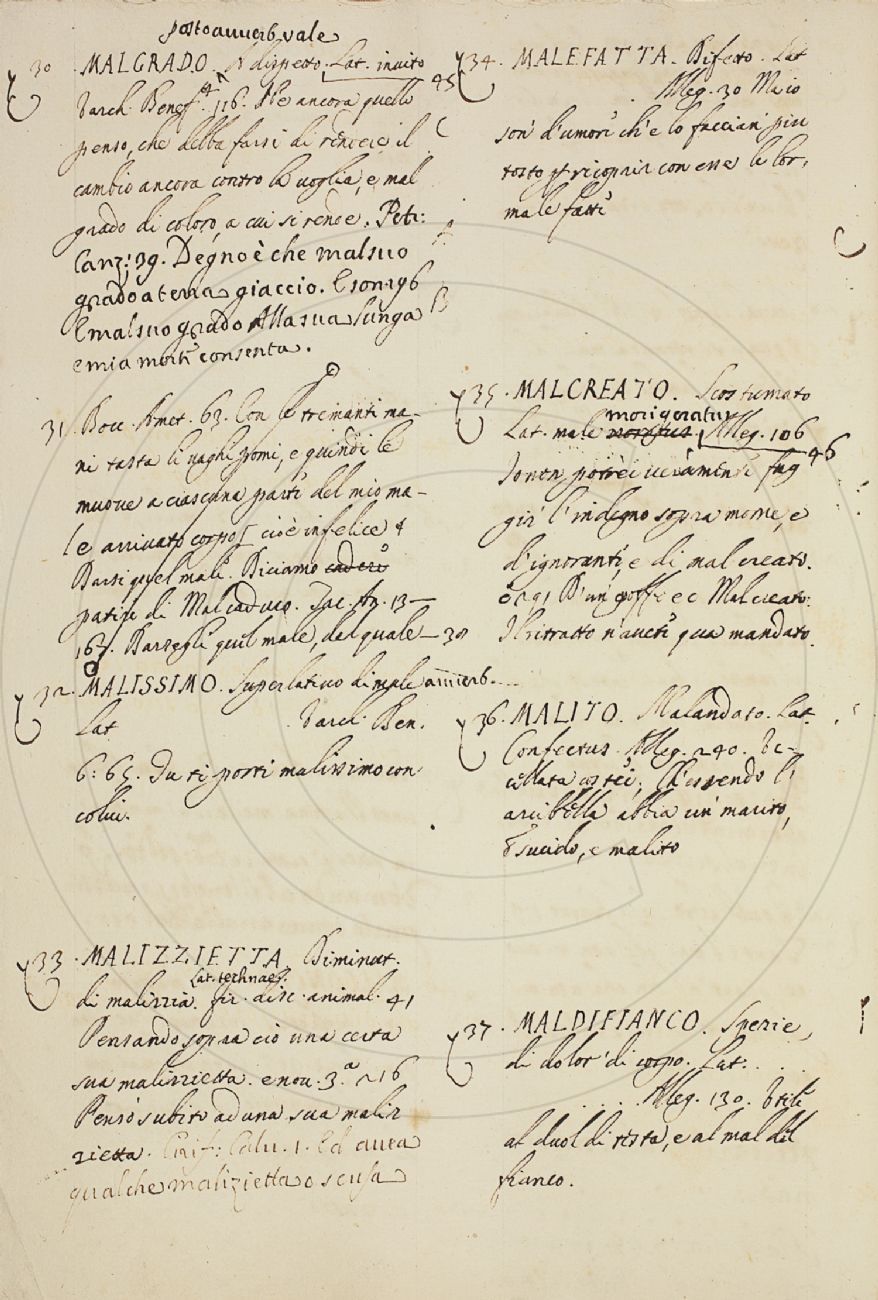 posto avverb. vale
30 · MALGRADO. A dispetto. Lat. invito
Varch. Benef. 4. 116. Né ancora quello 45
penso, che debba farsi di rendere il
cambio ancora contro la voglia, e mal
grado di coloro, a cui si rende. Petr:
Canz: 39. Degno è che mal suo
grado a terra giaccio. E son 196
E mal suo grado Alla sua lunga
e mia morte consenta.
31 Bocc. Amet. 63. Con tremanti ma-
ni tasta li vaghi pomi, e quindi le
muove a ciascuna parte del mio ma-
le arrivato corpo cioè infelice
Darsi quel male. Diciamo
patire di Malcaduco. Tac. An. 13-
167. Darsegli quel male, dal quale - 30
32 · MALISSIMO. Superlativo di male avverb.
Lat Varch. Ben.
6: 65. Tu ti porti malissimo con
colui.
33 · MALIZZIETTA. Diminut.
Lat. technae.
di malizzia. fir. disc. animal. 41
Pensando sopra ciò una certa
sua malizzietta. e nov. 3.a 216
Pensò subito ad una sua maliz
zietta. Calv. 1. Ed avea
qualche malizietta o scusa
34 · MALEFATTA. Difetto. Lat
Alleg. 30 Ma io
son d'umori ch'e lo faccian piu
tosto p ricoprir con esse le lor,
male fatte
35 · MALCREATO. Scostumato
morigeratus
Lat. male Alleg. 106 46
Io non potrei veramente fug
gir l'indegno sopra nome, e
d'ignorante, e di mal creato.
e 291 D'un goffo e Malcreato.
Il ritratto n'avete qua mandato.
36 · MALITO. Malandato. Lat.
Confectus. Alleg. 240. Vc-
cellata costei; Ch'essendo
arcibella abbia un marito,
Sucido, e malito
37 · MALDIFIANCO. Spezie,
di dolor' di corpo. Lat. . .
. . . . Alleg. 130. Utile
al duol di testa, e al mal del
fianco.